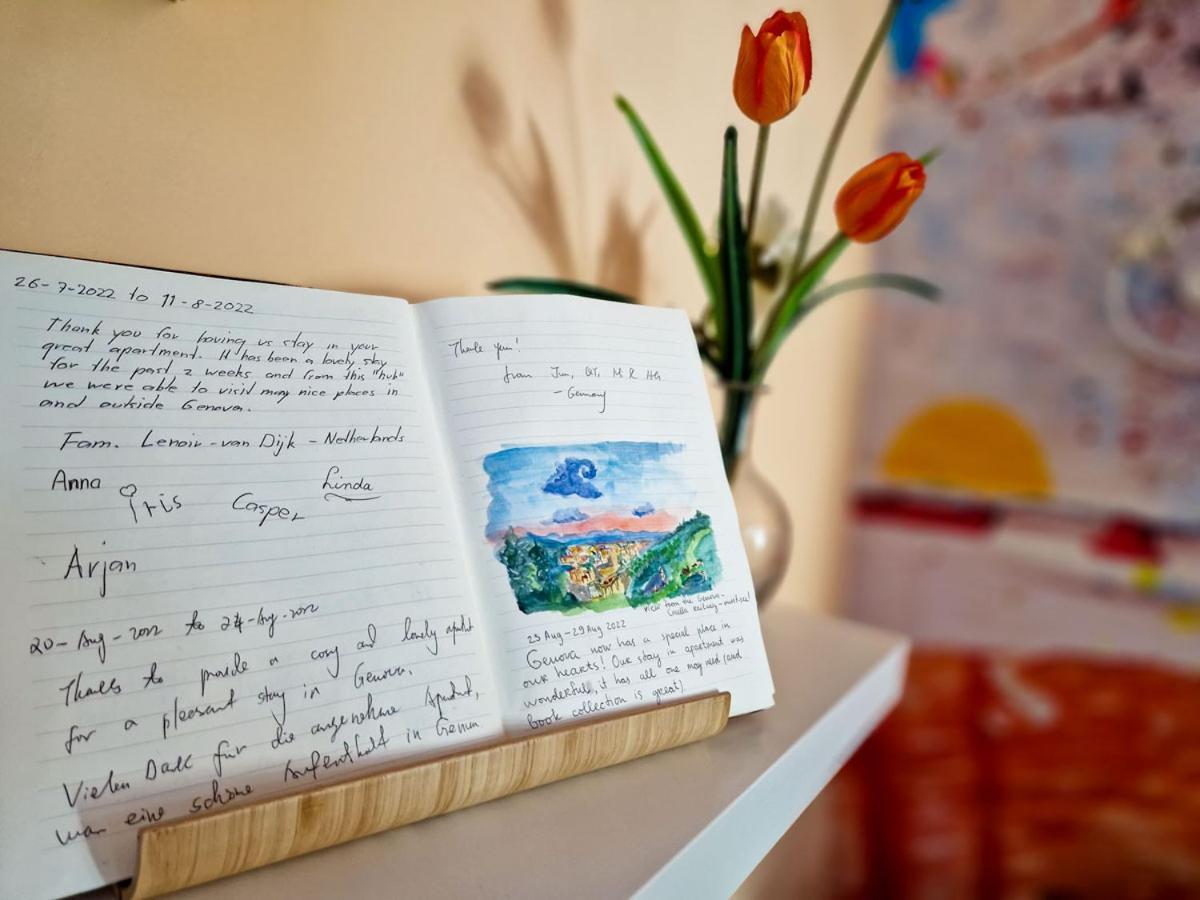 26-7-2022 to 11-8-2022
Thank you for having us stay in your
great apartment. It has been a lovely stay
for the past 2 weeks and from this "hub"
we were able to visit many nice places in
and outside Genova.
Fam. Lenoir-van Dijk - Netherlands
Anna
Iris
Casper
Linda
Arjan
20-Aug-2022 to 24-Aug-2022
Thanks to provide a cosy and lovely
for a pleasant stay in Genova.
Vielen Dank für die angenehme
war eine schöne Aufenthalt in Genua
Thank you!
from Jun,
- Germany
view from the Genova-
Casella railway - must see!
25 Aug-29 Aug 2022
Genova now has a special place in
our hearts! Our stay in apartment was
wonderful, it has all one may need (and
book collection is great)